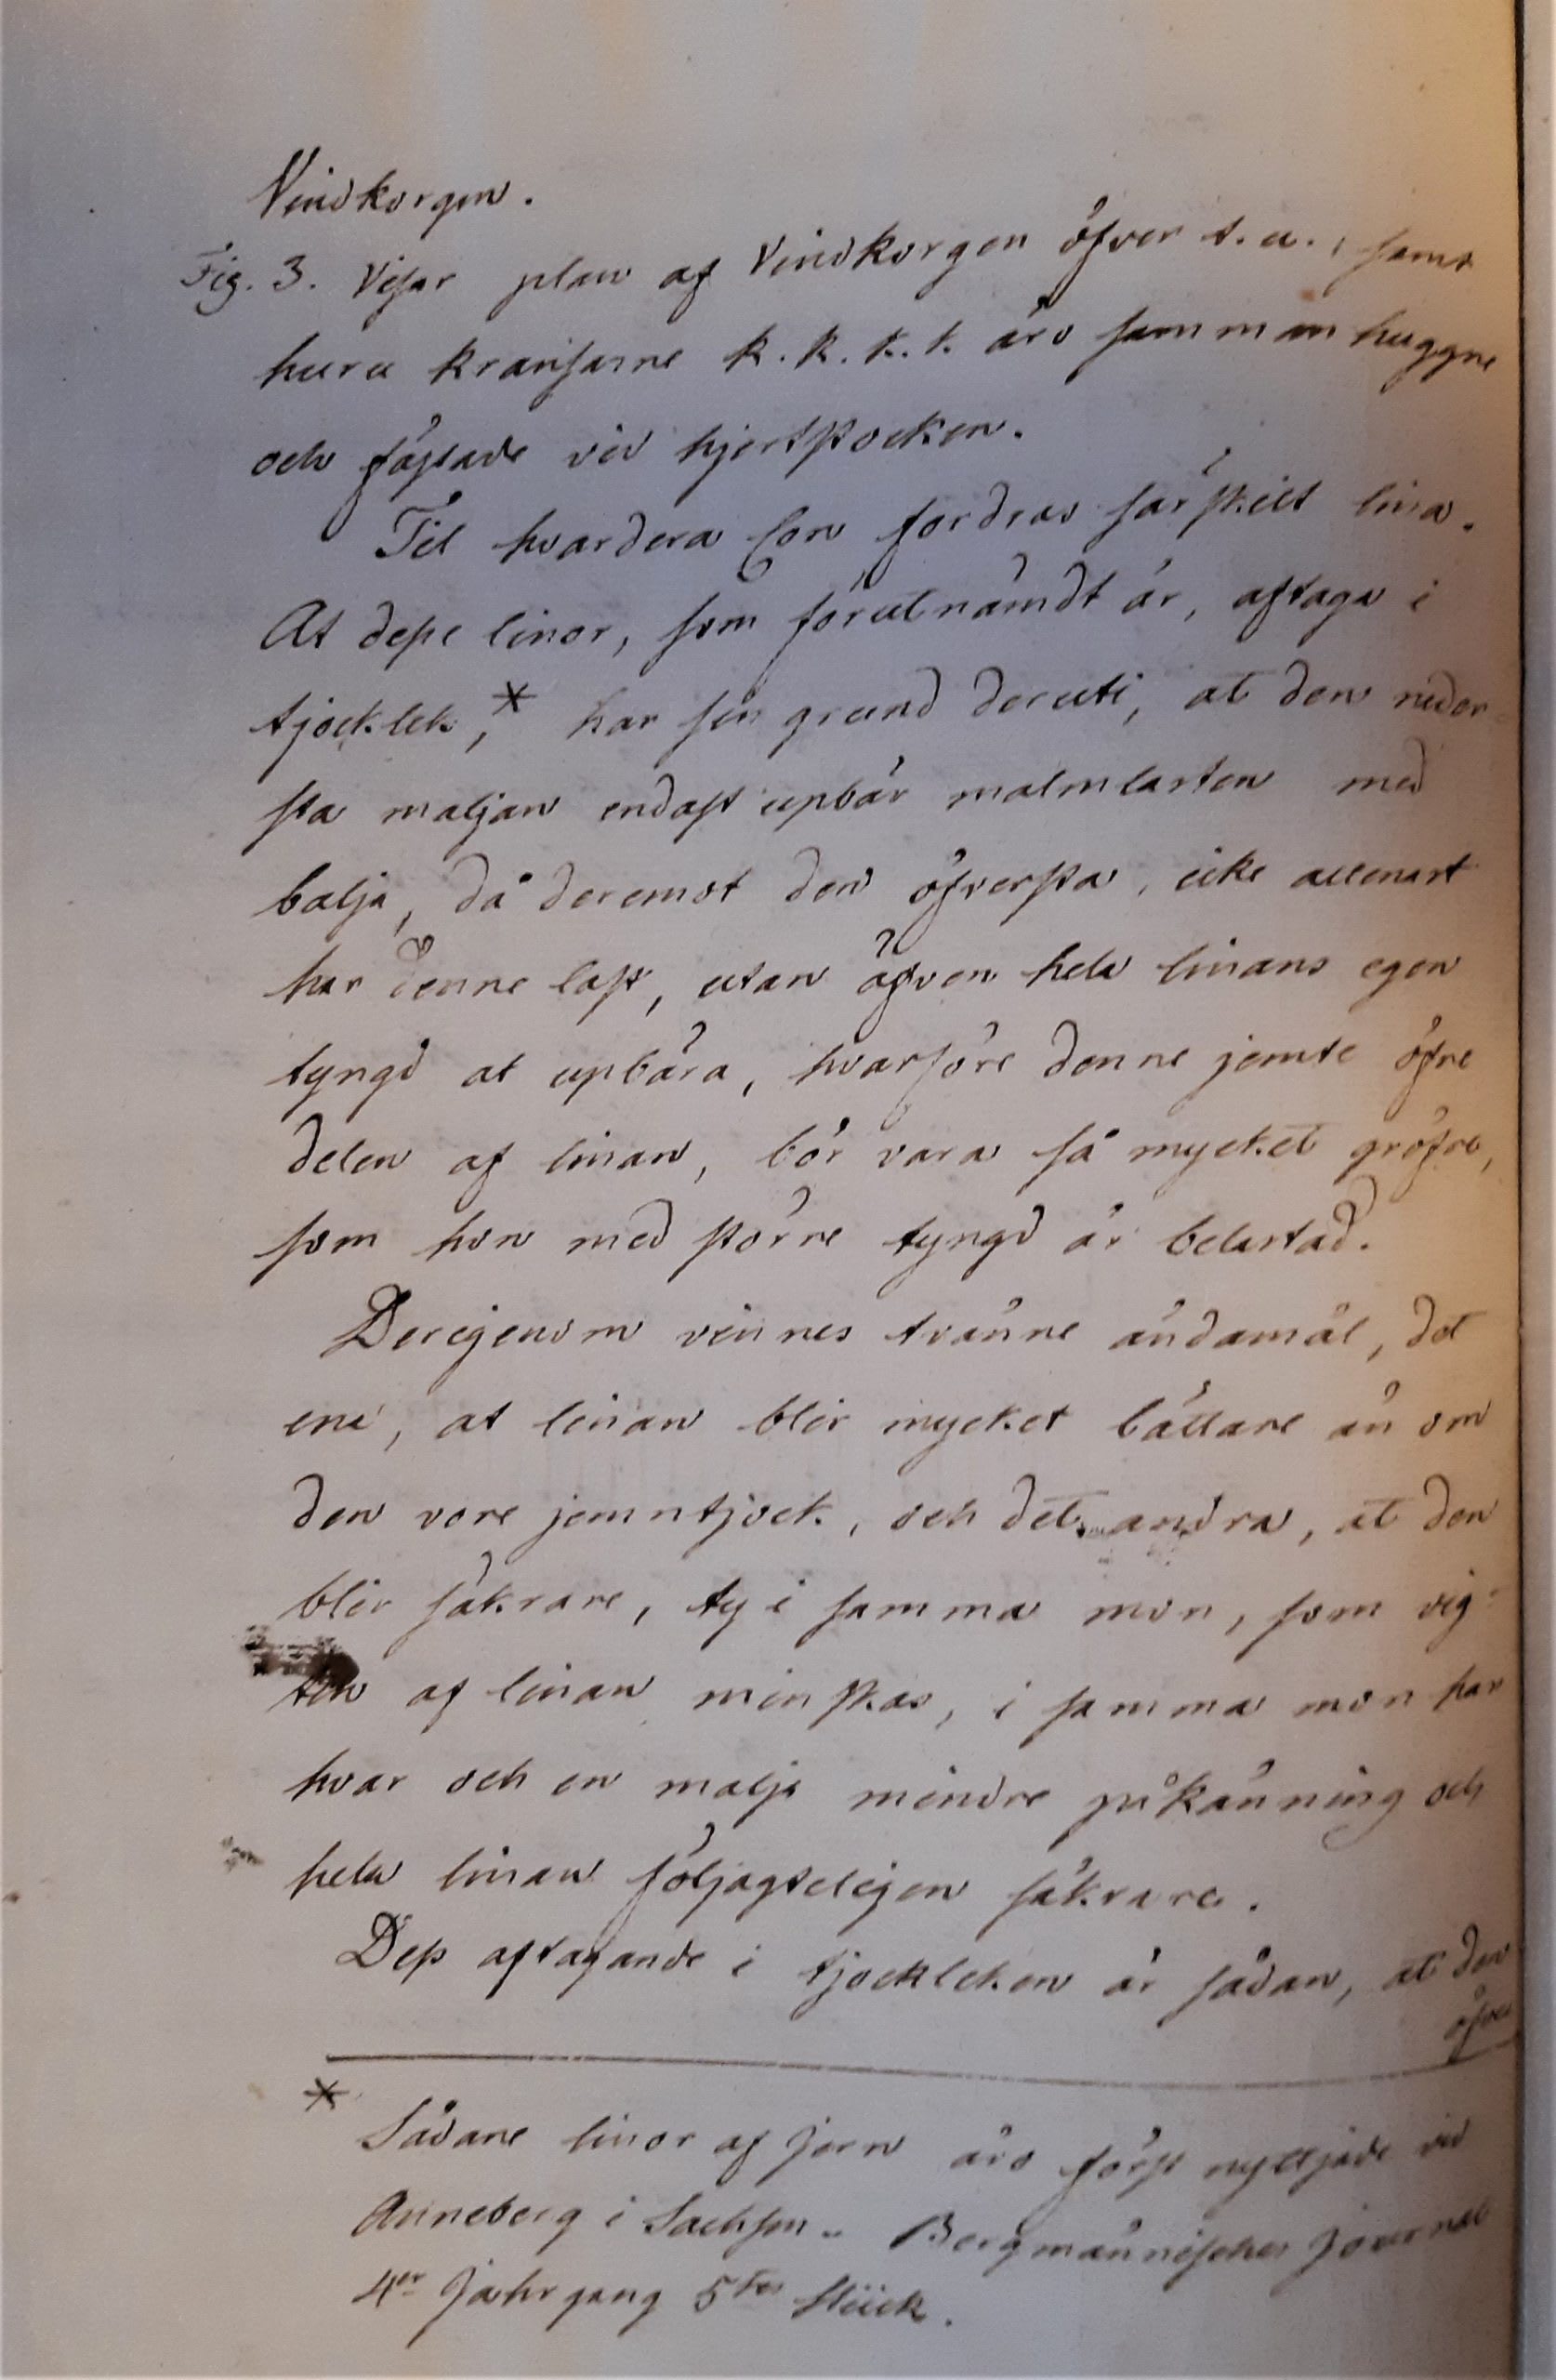 Vindkorgen.
Fig. 3. Visar plan af Vindkorgen öfver t. u., samt
huru kransarne k. k. k. k. äro sammanhuggne
och fästade vid hjertstocken.
Til hvardera Con fordras särskilt lina.
At desse linor, som förutnämdt är, aftaga i
tjocklek,* har sin grund deruti, at den neder-
sta maljan endast upbär malmlasten med
balja, då deremot den öfversta, icke allenast
har denne last, utan äfven hela linans egen
tyngd at upbära, hvarföre denne jemte öfre
delen af linan, bör vara så mycket gröfre,
som hon med större tyngd är belastad.
Derigenom vinnes tvänne ändamål, det
ena, at linan blir mycket lättare än om
den vore jemntjock, och det andra, at den
blir säkrare, ty i samma mon, som vig-
ten af linan minskas, i samma mon har
hvar och en malja mindre påkänning och
hela linan följagteligen säkrare.
Dess aftagande i tjockleken är sådan, at den
öfver
* Sådane linor af jern äro först nyttjade vid
Anneberg i Sachsen. Bergmännisches Journal
4er Jahrgang 5tes Stück.